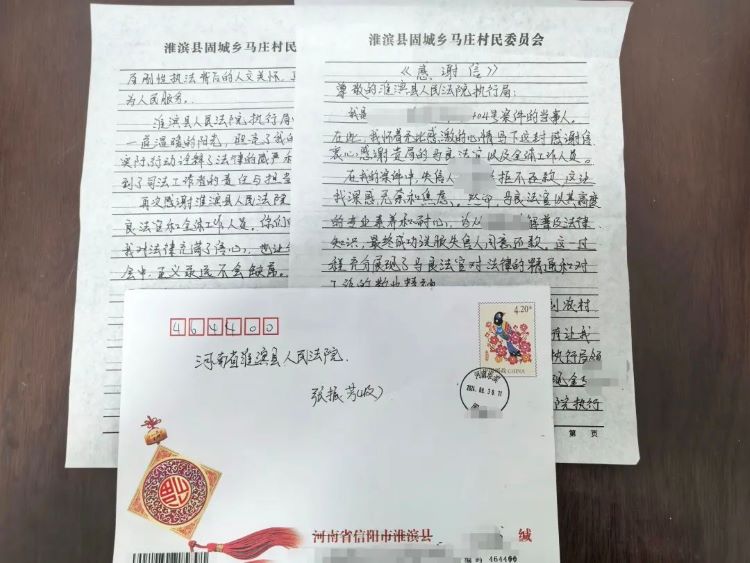 淮滨县固城乡马庄村民
淮滨县固城乡马庄村民委员会
为人民服务。
淮滨县人民法院执行局
一道温暖的阳光，
实际行动诠释了法律的威严
到了司法工作者的责任与担当
再次感谢淮滨县人民法院
良法官和全体工作人员。你们
我对法律充满了信心，也让
会中，正义永远不会缺席。
《感谢信》
尊敬的淮滨县人民法院执行局：
我是 404号案件的当事人。
在此，我怀着无比感激的心情写下这封感谢信
衷心感谢贵局的马良法官以及全体工作人员。
在我的案件中，失信人 拒不还款，这让
我深感无奈和焦虑。然而，马良法官以其高度
的专业素养和耐心，为 解普及法律
知识，最终成功说服失信人同意还款。这一过
程充分展现了马良法官对法律的精通和对
工作的敬业精神
到农村
让我
执行局
现金
院执行
第 页
464400
4.20元
中国邮政 CHINA
河南省淮滨县人民法院
张振芳(收)
河南省信阳市淮滨县
缄
464400